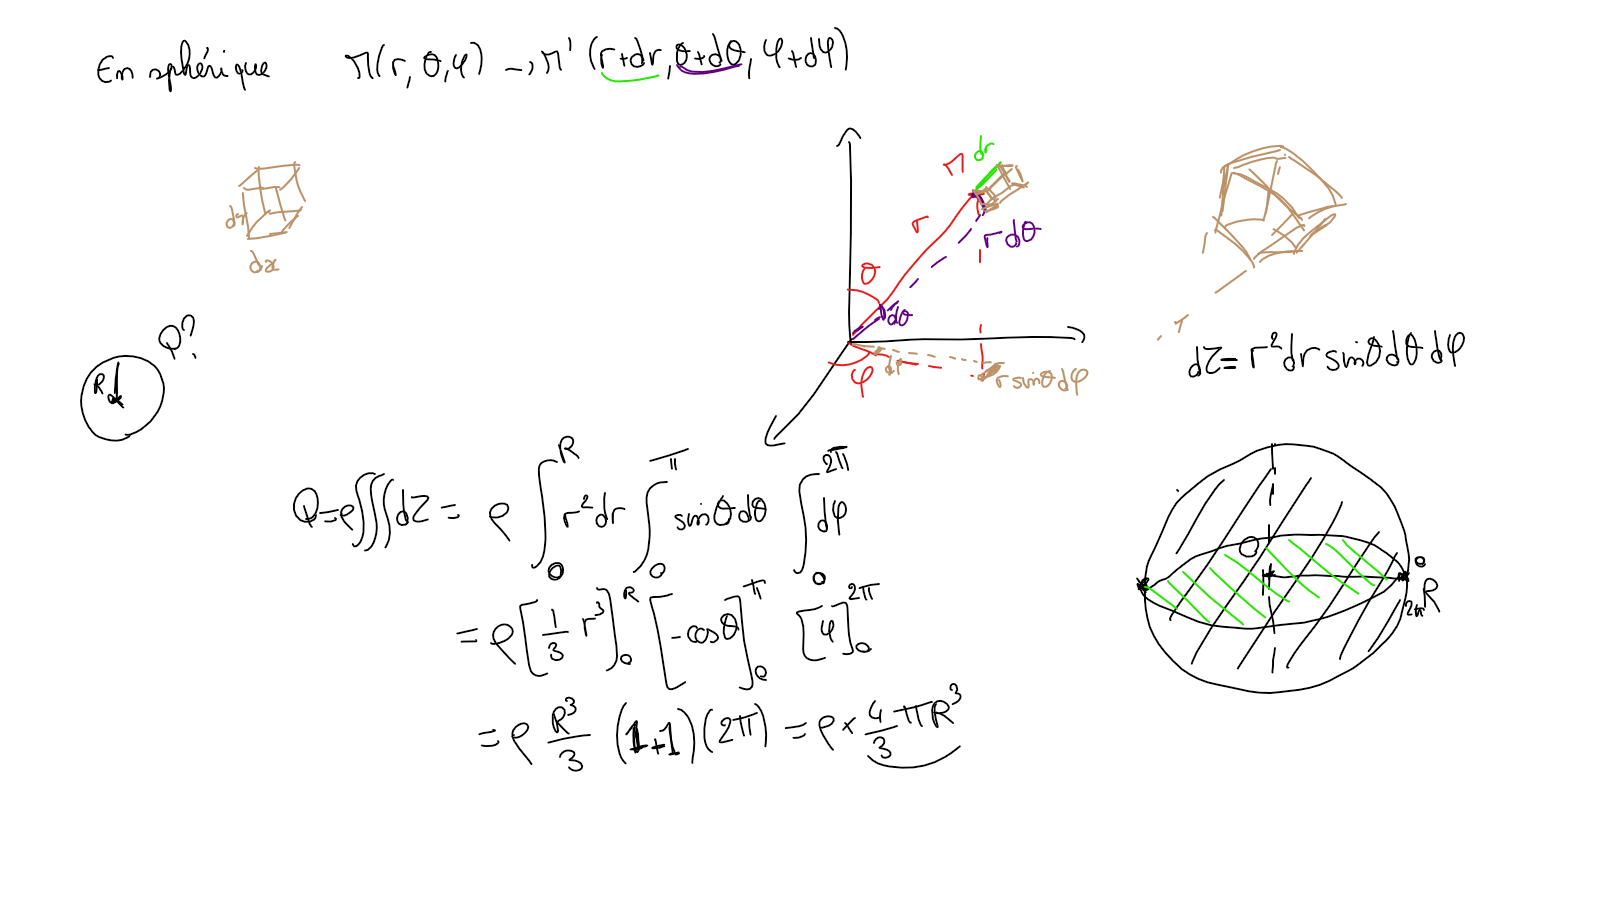 En sphérique M(r, θ, φ) → M' (r+dr, θ+dθ, φ+dφ)
M dr
r
r dθ
θ
dθ
φ dφ r sinθ dφ
dx
Q?
R
dτ = r² dr sinθ dθ dφ
Q = ρ∭dτ = ρ ∫₀^R r² dr ∫₀^π sinθ dθ ∫₀^2π dφ
= ρ [1/3 r³]₀^R [-cosθ]₀^π [φ]₀^2π
= ρ R³/3 (1+1)(2π) = ρ × 4/3 πR³
O
0
2π R